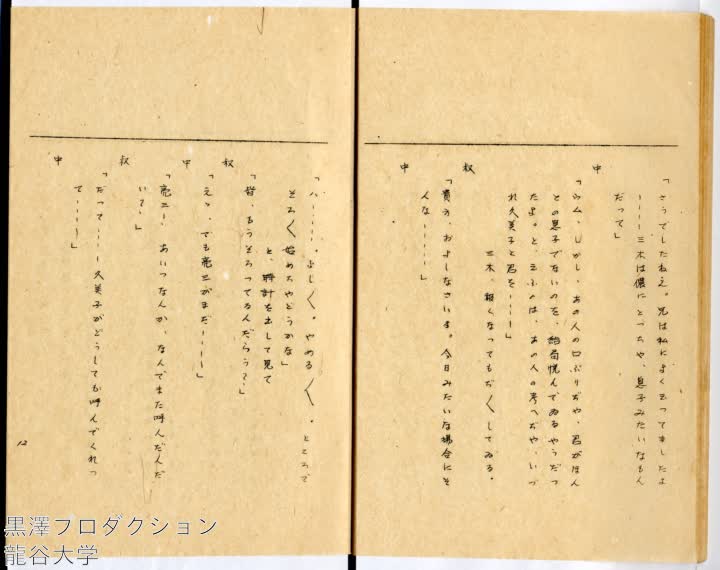 「さうでしたねえ。兄は私によく云つてましたよ
――三木は儂にとつちや、息子みたいなもん
だつて」
中
「ウム、しかし、あの人の口ぶりぢや、君がほん
との息子でないのを、結局悦んでゐるやうだつ
たよ。と、云ふのは、あの人の考へぢや、いづ
れ久美子と君を――」
三木、赧くなつてもぢ／＼してゐる。
叔
「貴方、およしなさいよ。今日みたいな場合にそ
中
んな――」
「ハ……。よし／＼。やめる／＼。ところで
そろ／＼始めちやどうかな」
と、時計を出して見て
「皆、もうそろつてるんだらう？」
叔
「えゝ、でも亮二がまだ――」
中
「亮二、あいつなんか、なんでまた呼んだんだ
い？」
叔
「だつて――久美子がどうしても呼んでくれつ
中
て――」
12
黒澤プロダクション
龍谷大学